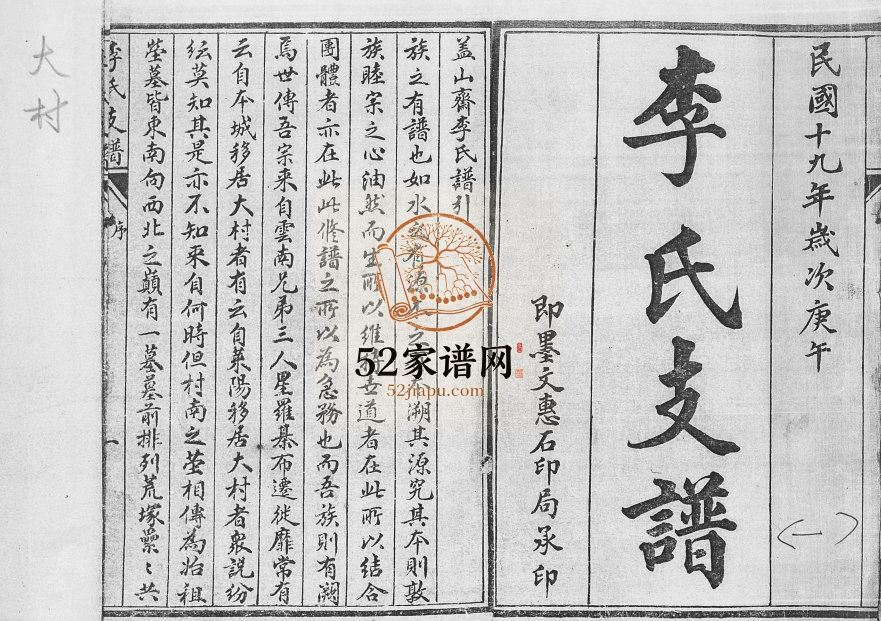 民國十九年歲次庚午
(一)
李氏支譜
即墨文惠石印局承印
蓋山齋李氏譜引
族之有譜也如水之有源木之有本溯其源究其本則敦
族睦宗之心油然而生所以維持世道者在此所以結合
團體者亦在此此修譜之所以為急務也而吾族則有闕
焉世傳吾宗來自雲南兄弟三人星羅棊布遷徙靡常有
云自本城移居大村者有云自萊陽移居大村者衆說紛
紜莫知其是亦不知來自何時但村南之塋相傳為始祖
塋墓皆東南向西北之巔有一墓墓前排列荒塚纍〻共
李氏支譜
序
一
大村
52家谱网
52jiapu.com